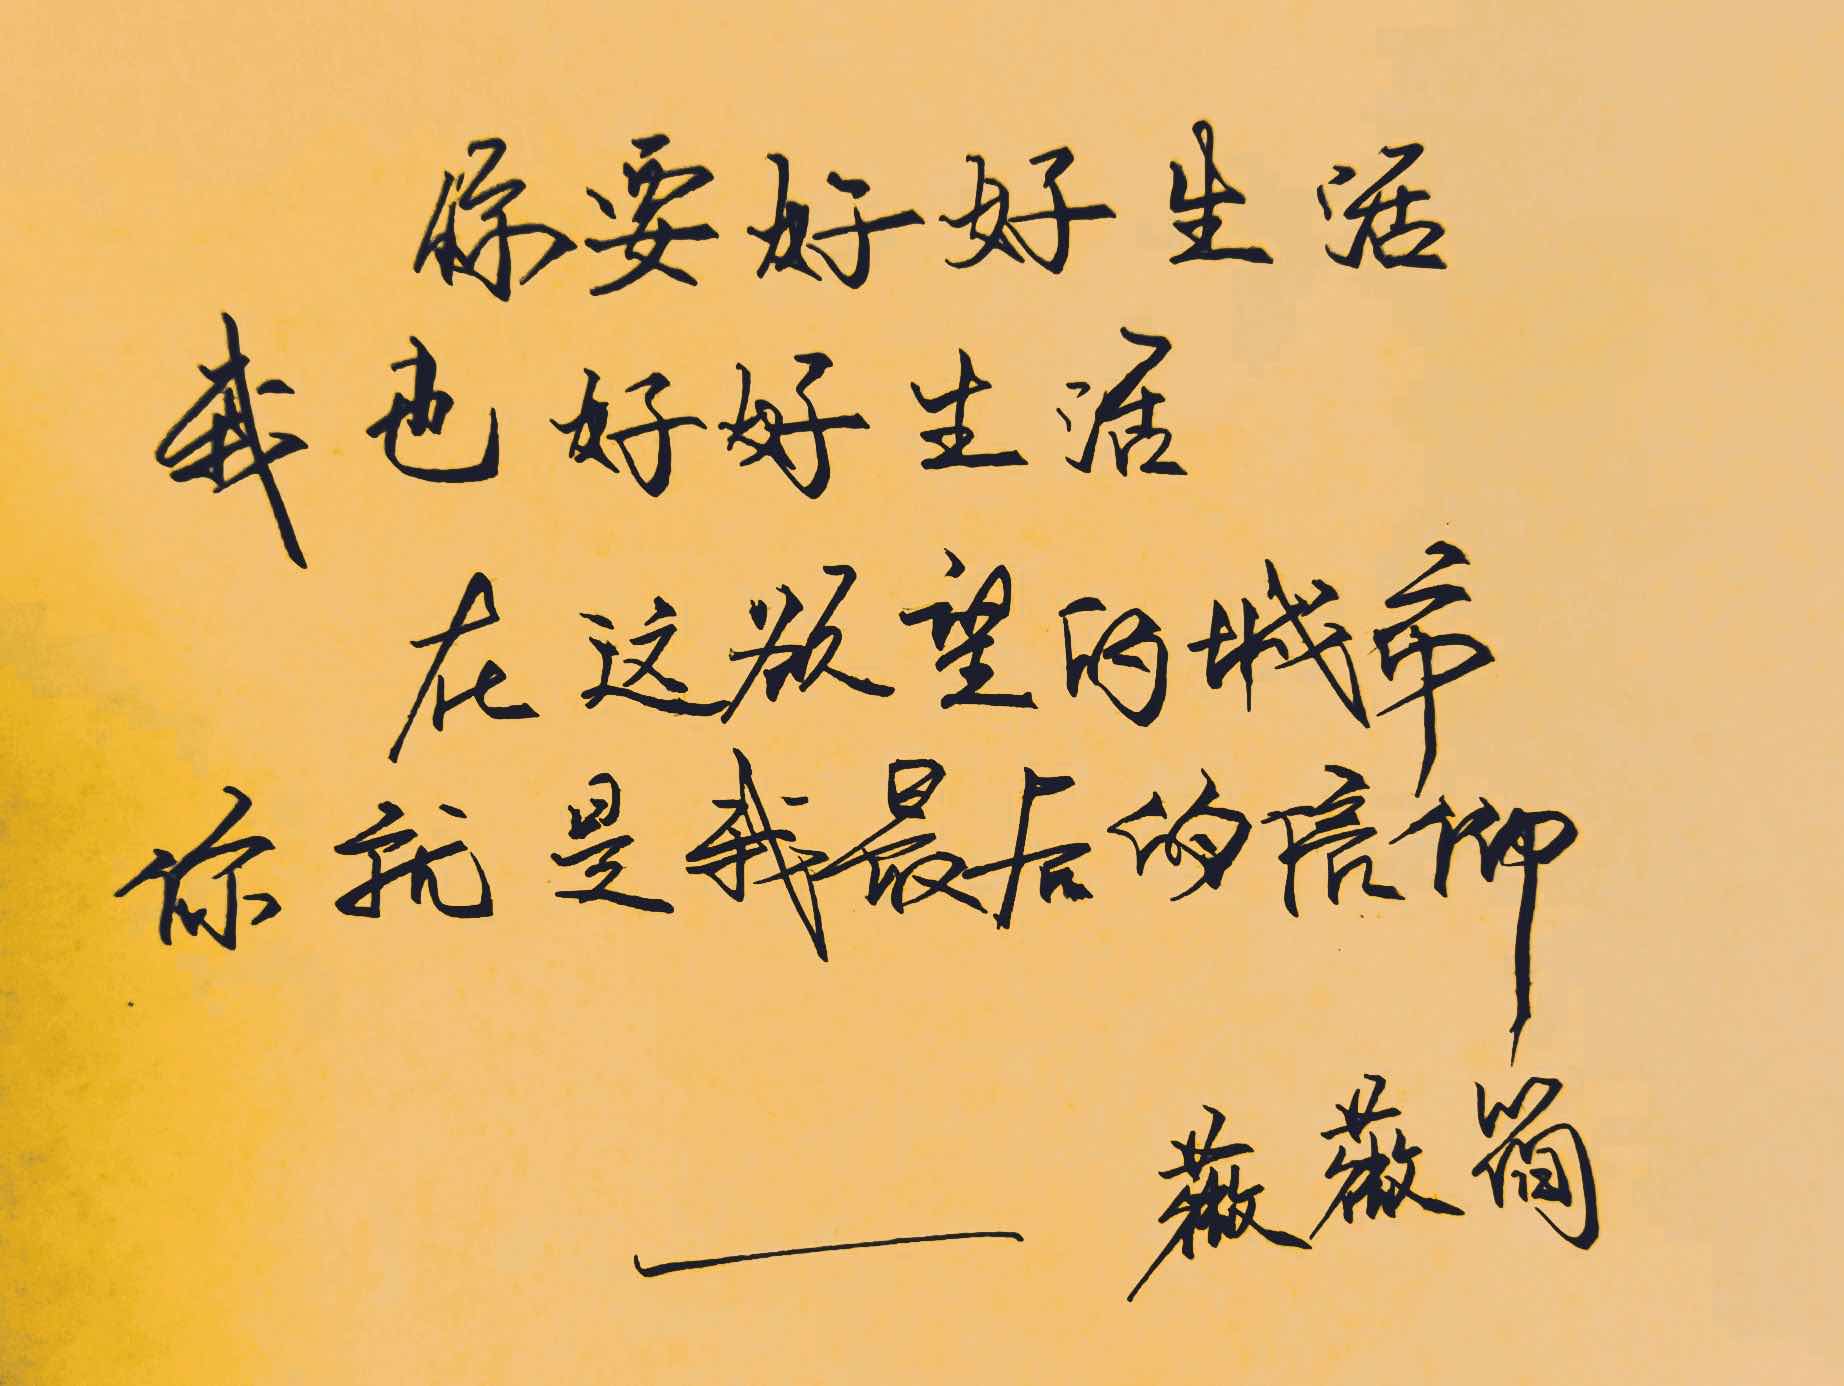 你要好好生活
我也好好生活
在这欲望的城市
你就是我最后的信仰
——薇薇简